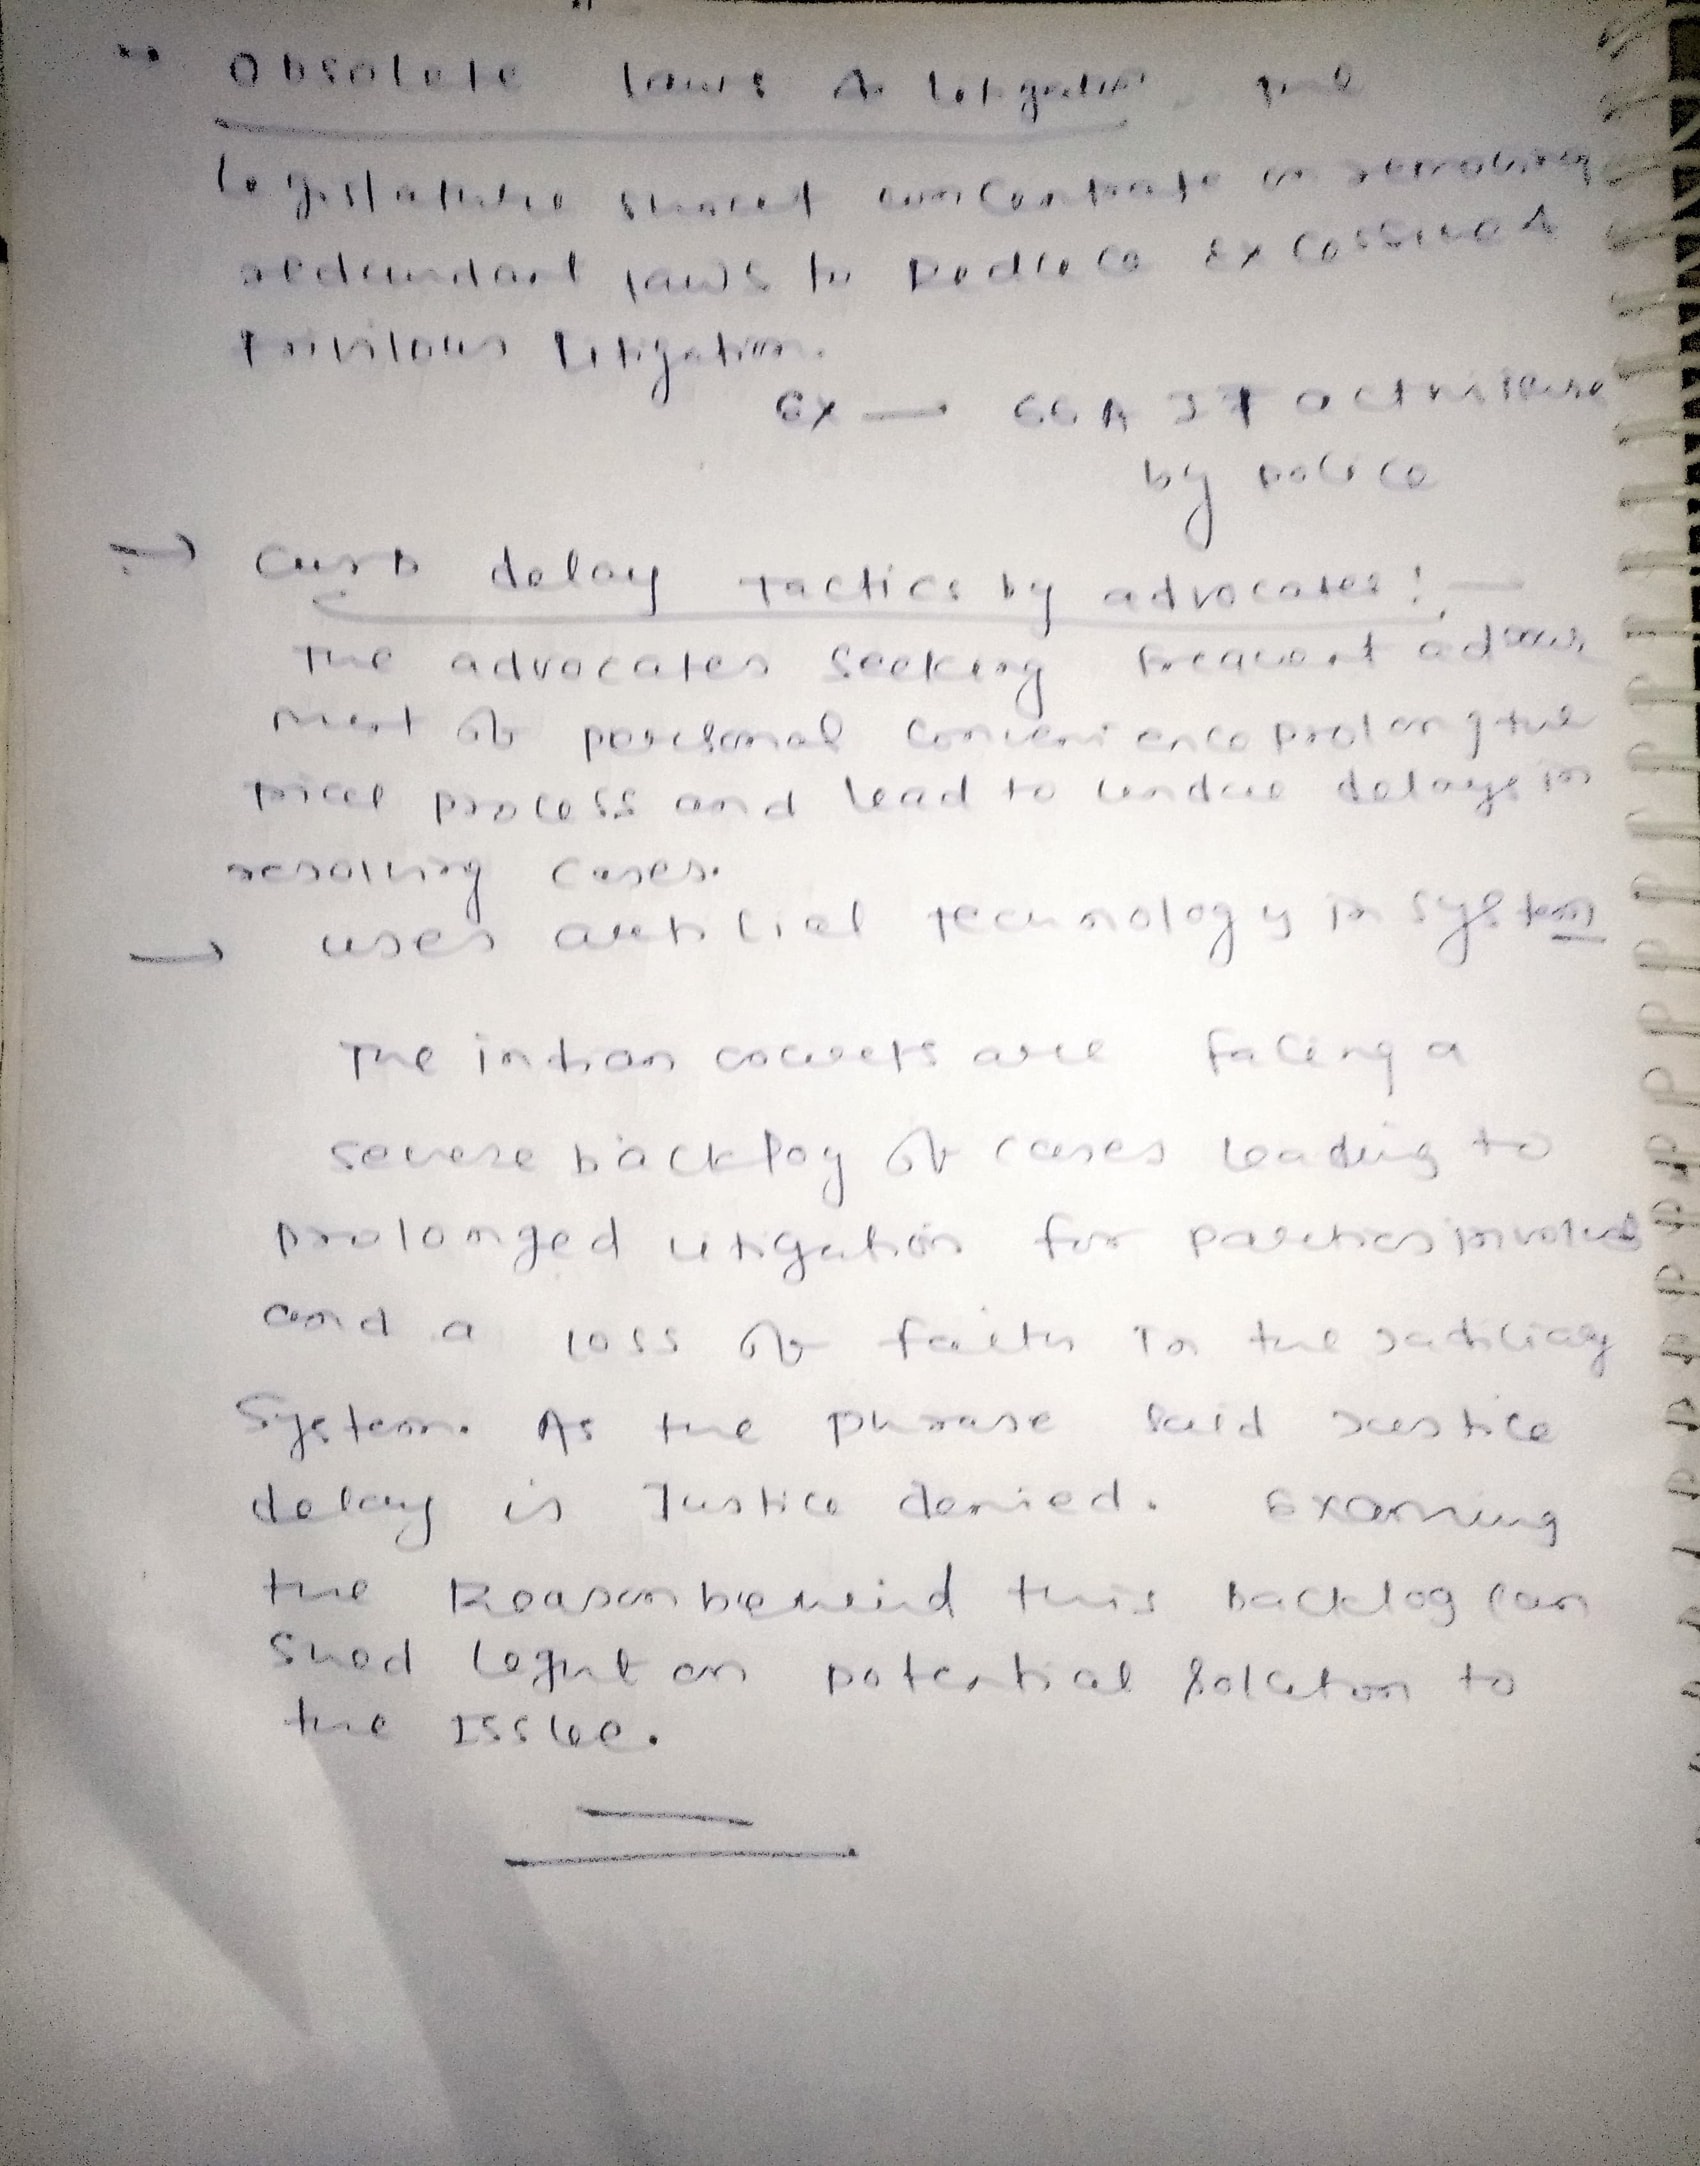 Obsolete laws & litigation, The
legislature should concentrate on removing
redundant laws to Reduce excessive &
frivilous litigation.
Ex → 66A IT act misuse
by police
→ Curb delay Tactics by advocates :-
The advocates seeking frequent adourn
ment of personal convenience prolong the
trial process and lead to undue delays in
resolving cases.
→ uses artificial Technology in system
The indian courts are facing a
severe backlog of cases leading to
prolonged litigation for parties involved
and a loss of faith in the judiciary
System. As the phrase said Justice
delay is Justice denied. Examing
the Reason beheind this backlog can
shed light on potential solution to
the Issue.